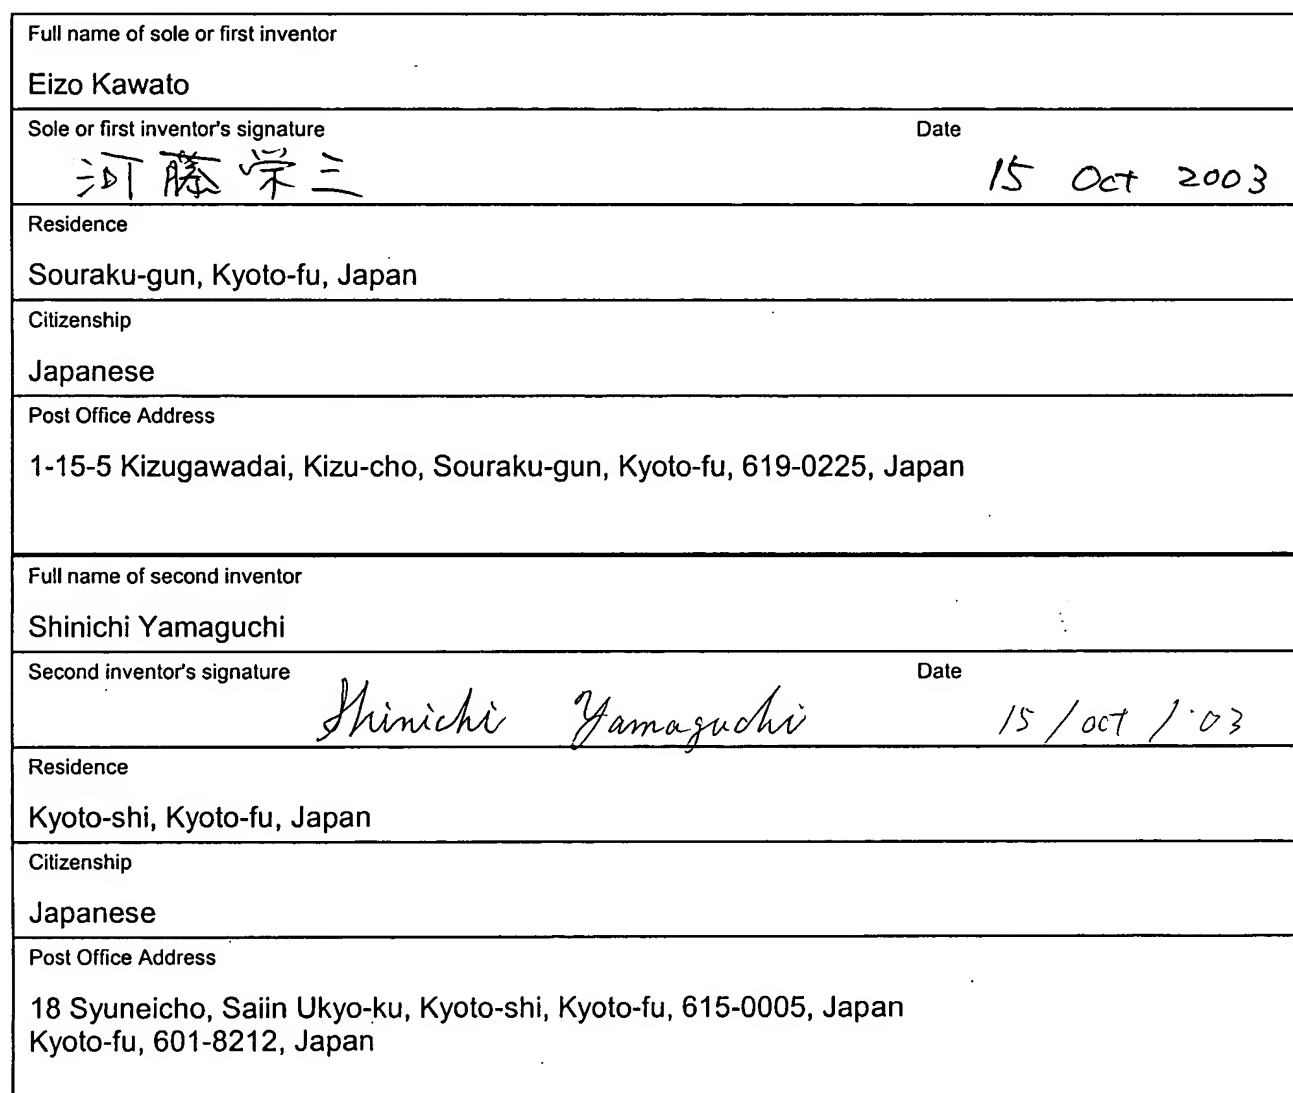 Full name of sole or first inventor
Eizo Kawato
Sole or first inventor's signature
Date
河藤栄三
15 Oct 2003
Residence
Souraku-gun, Kyoto-fu, Japan
Citizenship
Japanese
Post Office Address
1-15-5 Kizugawadai, Kizu-cho, Souraku-gun, Kyoto-fu, 619-0225, Japan
Full name of second inventor
Shinichi Yamaguchi
Second inventor's signature
Date
Shinichi Yamaguchi
15 / oct / '03
Residence
Kyoto-shi, Kyoto-fu, Japan
Citizenship
Japanese
Post Office Address
18 Syuneicho, Saiin Ukyo-ku, Kyoto-shi, Kyoto-fu, 615-0005, Japan
Kyoto-fu, 601-8212, Japan